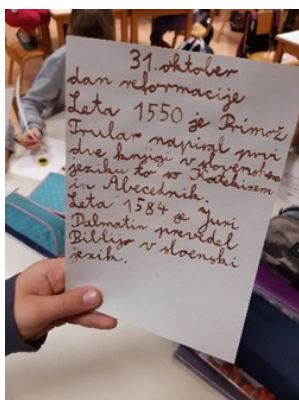 31. oktober
dan reformacije
Leta 1550 je Primož
Trular napisal prvi
dve knjigi v slovenskem
jeziku to so Katekizem
in Abecednik.
Leta 1584 je Juri
Dalmatin prevedel
Biblijo v sloenski
jezik.